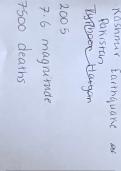 Kashmir Earthquake
Pakistan
2005
7.6 magnitude
7500 deaths